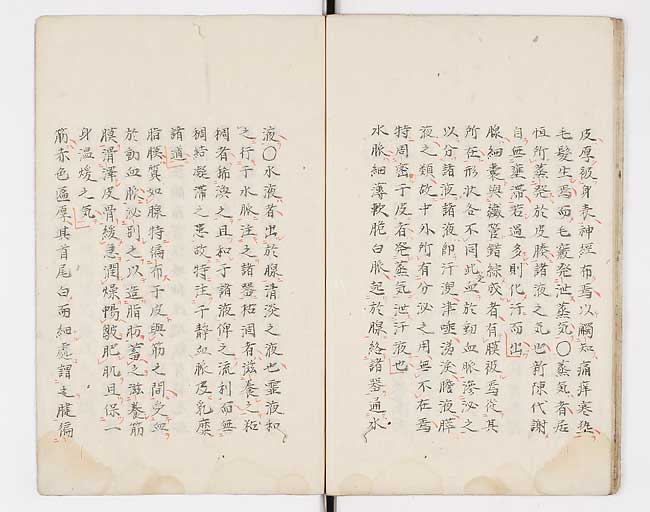 皮厚被身表神経布焉以觸知痛痒寒熱
毛髮生焉而毛竅発泄蒸気〇蒸気者居
恒所蒸発於皮膜諸液之気也新陳代謝
自無壅滞若過多則化汗而出
腺細囊與纖管錯綜或者有膜被焉從其
所在形状各不同此血於動血脈滲泌之
以分諸液諸液即汗溲津唾涕涙膽液膵
液之類故中外所有分泌之用無不在焉
特周密于皮者発蒸気泄汗液也
水脈細薄軟脆白脈起於腺絡諸器通水
液〇水液者出於腺清淡之液也靈液和
之行于水脈注之諸器枯涸者滋養之粘
稠者稀渙之且和于諸液俾之流利而無
稠結凝滞之患故特注于静血脈及乳糜
諸道
脂膜質如腺特徧布于皮與筋之間受血
於動血脈泌別之以造脂肪蓄之滋養筋
膜滑澤皮骨緩急潤燥暢皺肥肌且保一
身温煖之気
筋赤色匾厚其首尾白而細處謂之腱徧